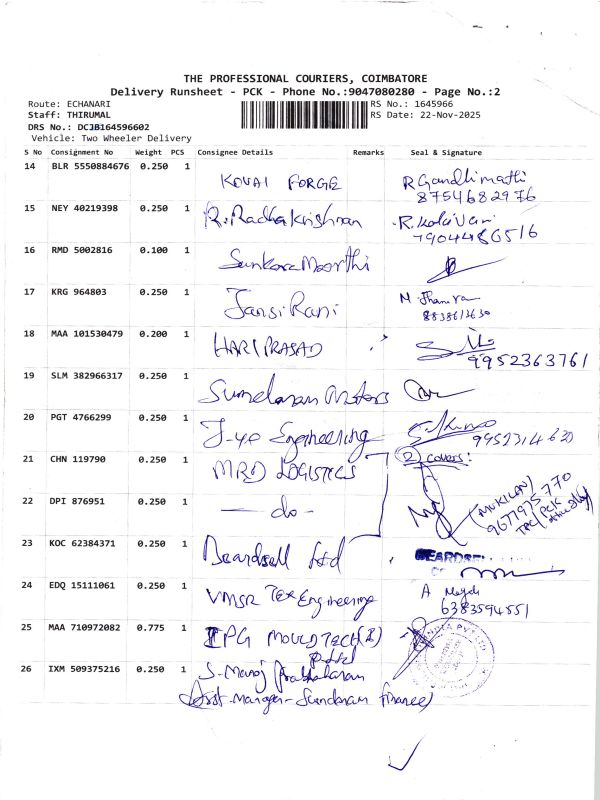 THE PROFESSIONAL COURIERS, COIMBATORE
Delivery Runsheet - PCK - Phone No.:9047080280 - Page No.:2
Route: ECHANARI RS No.: 1645966
Staff: THIRUMAL RS Date: 22-Nov-2025
DRS No.: DCJB164596602
Vehicle: Two Wheeler Delivery
S No Consignment No Weight PCS Consignee Details Remarks Seal & Signature
14 BLR 5550884676 0.250 1 KOVAI FORGE R Gandhimathi
8754682976
15 NEY 40219398 0.250 1 R. Radhakrishnan R. Kalaivani
7904486516
16 RMD 5002816 0.100 1 Sankara Moorthi
17 KRG 964803 0.250 1 Jansi Rani
8838613630
18 MAA 101530479 0.200 1 HARIPRASAD
9952363761
19 SLM 382966317 0.250 1 Sundaram Motors
20 PGT 4766299 0.250 1 Engineering
9952314630
21 CHN 119790 0.250 1 MRD LOGISTICS 2 covers:
22 DPI 876951 0.250 1 — do - (MUKILAN)
9677975770
23 KOC 62384371 0.250 1 Beardsell Ltd BEARDSELL
24 EDQ 15111061 0.250 1 VMSR Tex Engineering A
6383594551
25 MAA 710972082 0.775 1 IPG MOULD TECH (I)
26 IXM 509375216 0.250 1 S. Manoj Prabhakaran
Asst. Manager - Sundaram finance)